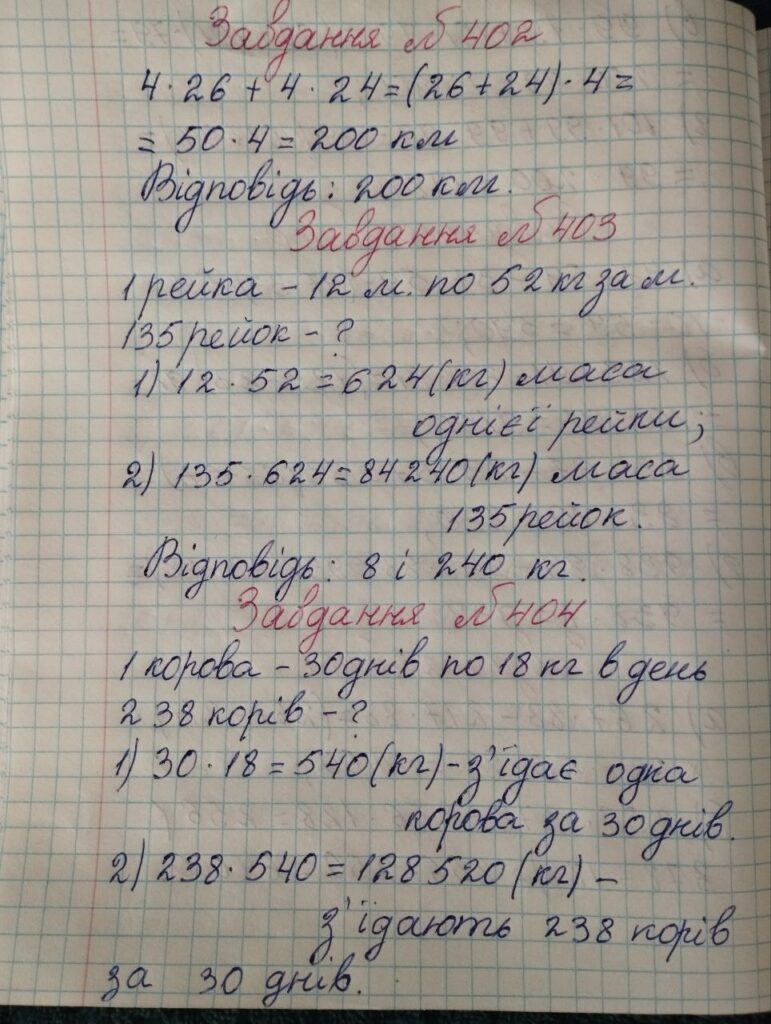 Завдання № 402
4 · 26 + 4 · 24 = (26 + 24) · 4 =
= 50 · 4 = 200 км
Відповідь: 200 км.
Завдання № 403
1 рейка – 12 м. по 52 кг за м.
135 рейок – ?
1) 12 · 52 = 624 (кг) маса
однієї рейки;
2) 135 · 624 = 84240 (кг) маса
135 рейок.
Відповідь: 8 і 240 кг.
Завдання № 404
1 корова – 30 днів по 18 кг в день
238 корів – ?
1) 30 · 18 = 540 (кг) – з'їдає одна
корова за 30 днів.
2) 238 · 540 = 128520 (кг) –
з'їдають 238 корів
за 30 днів.